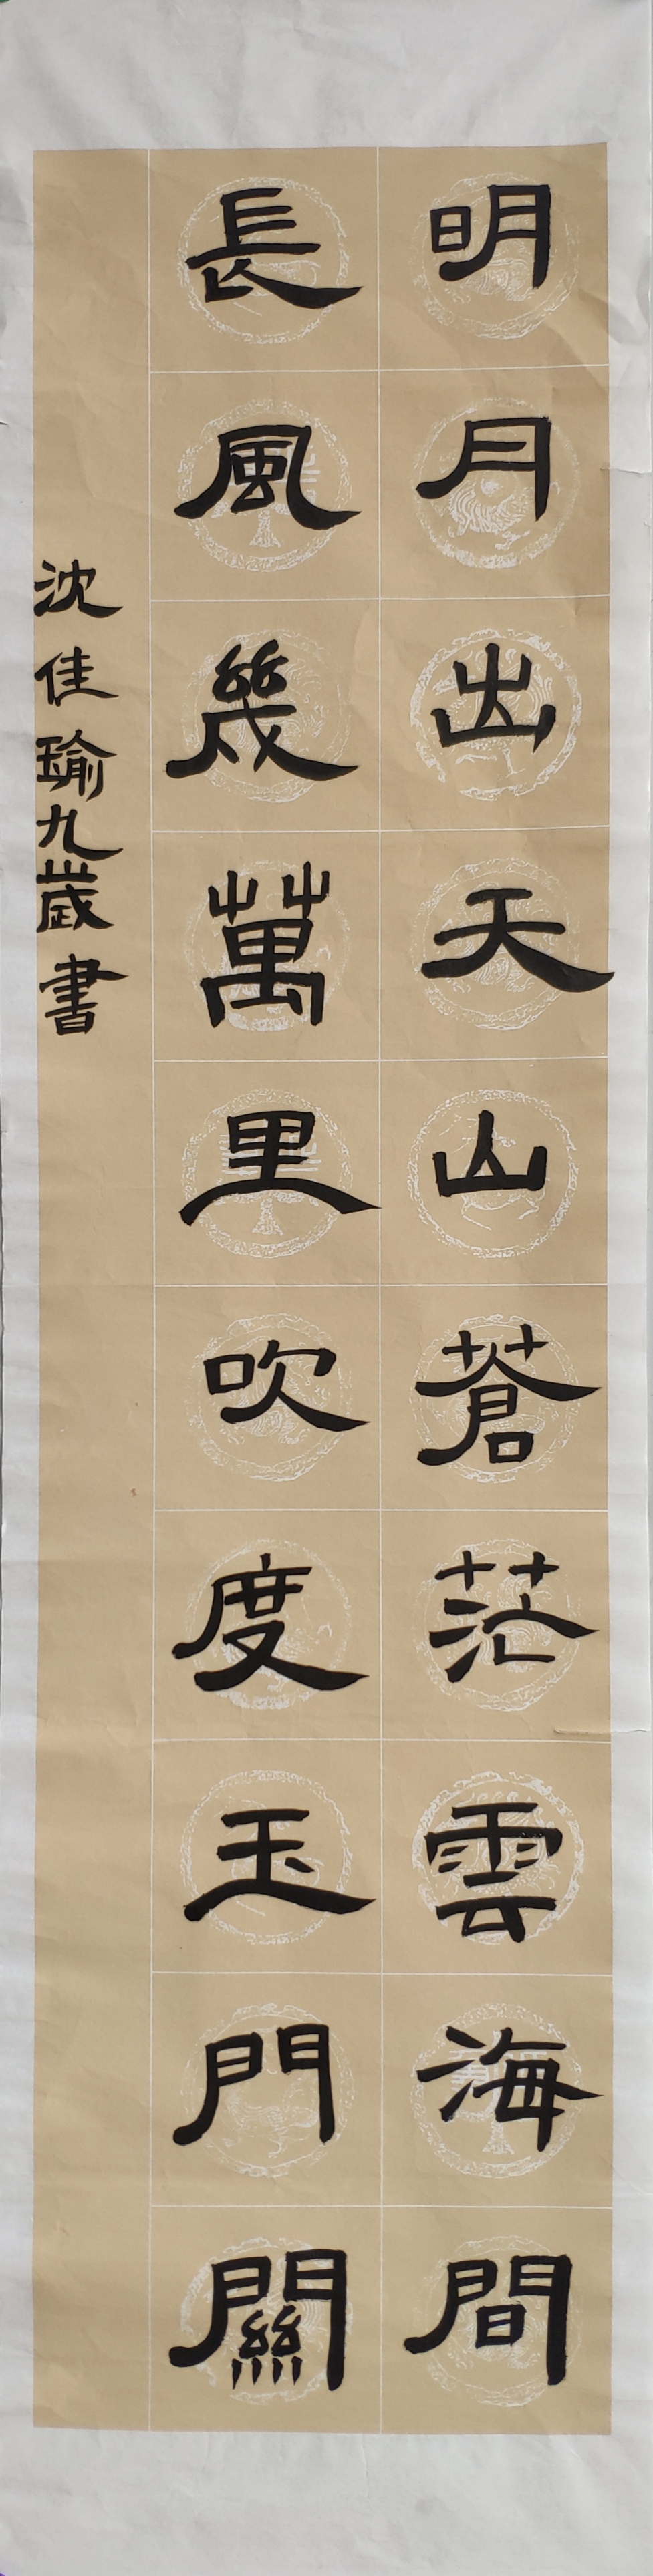 明月出天山蒼茫雲海間
長風幾萬里吹度玉門關
沈佳瑜九歲書